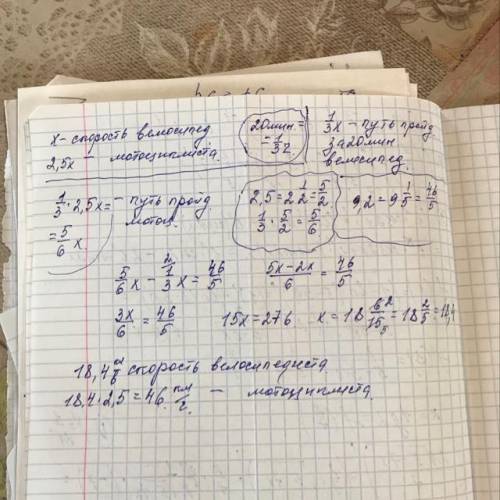 x - скорость велосипед.
2,5x - мотоциклиста.
20мин = 
= 1/3 ч.
1/3 x - путь пройд.
за 20 мин
велосипед.
1/3 · 2,5x = - путь пройд
= 5/6 x. мотоц.
2,5 = 2 1/2 = 5/2
1/3 · 5/2 = 5/6
9,2 = 9 1/5 = 46/5
5/6 x - 1/3 x = 46/5
5x - 2x / 6 = 46/5
3x/6 = 46/5
15x = 276
x = 18 6/15 = 18 2/5 = 18,4
18,4 км/ч скорость велосипедиста
18,4 · 2,5 = 46 км/ч - мотоциклиста.